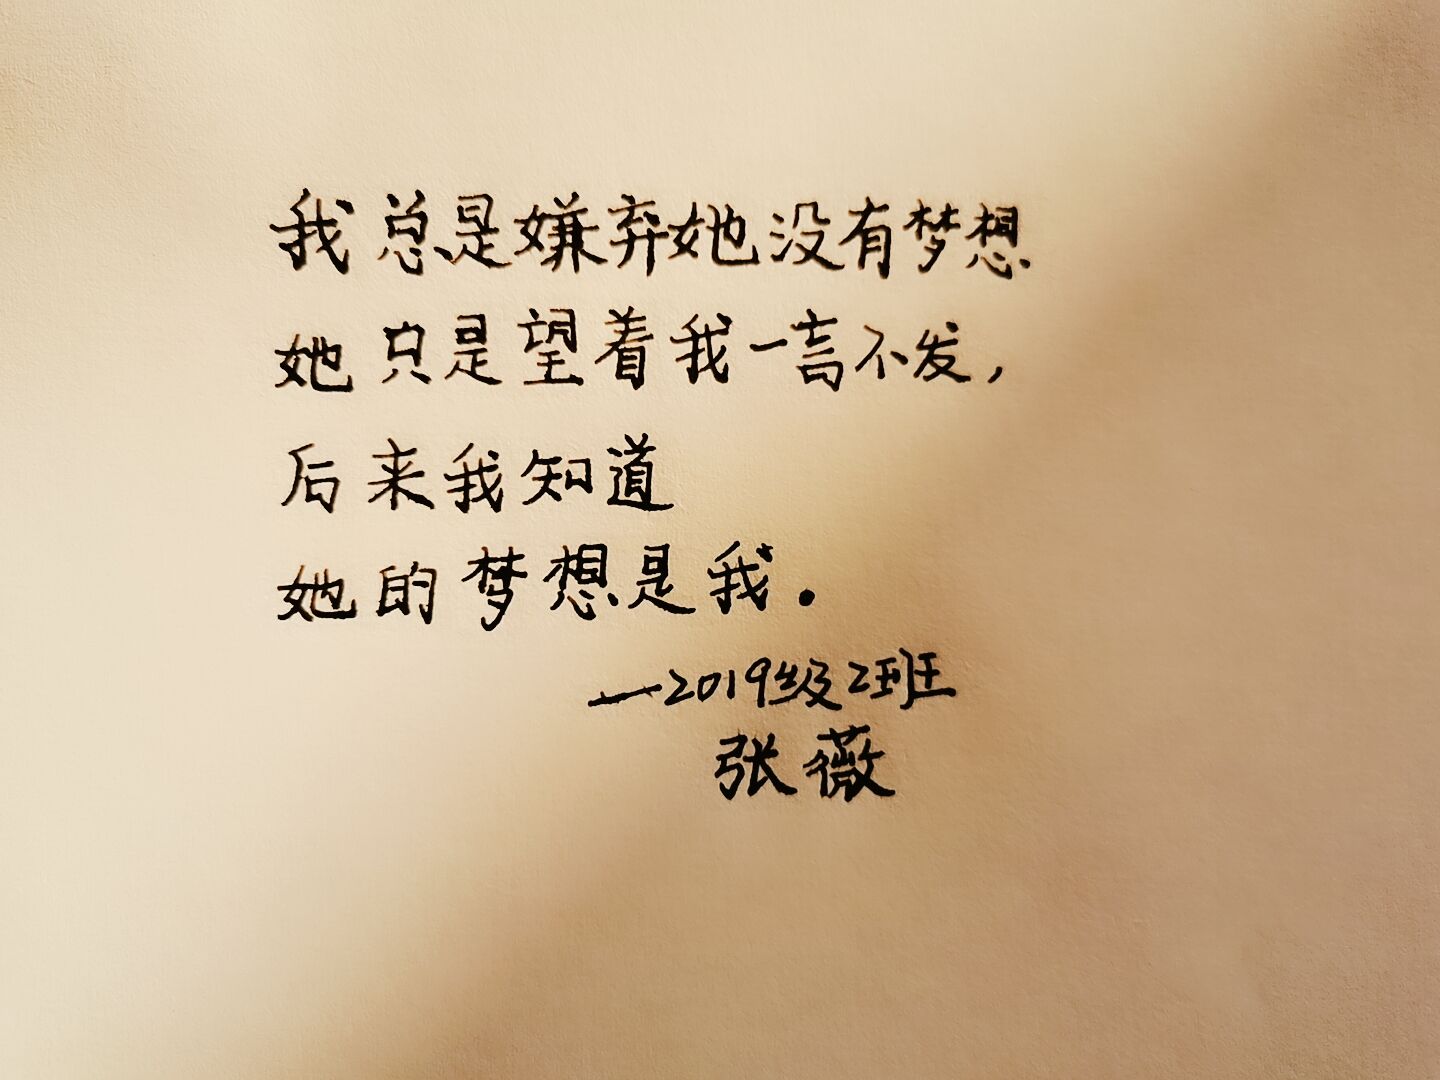 我总是嫌弃她没有梦想
她只是望着我一言不发，
后来我知道
她的梦想是我.
—2019级2班
张薇